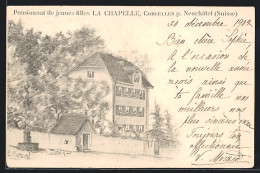 Pensionnat de jeunes filles LA CHAPELLE, CORCELLES p. Neuchâtel (Suisse)
30 décembre 1902
Bien chère Sophie,
à l'occasion de
la nouvelle année
reçois ainsi que
ta famille nos
meilleurs vœux
plus sincères
Toujours
affectionnée